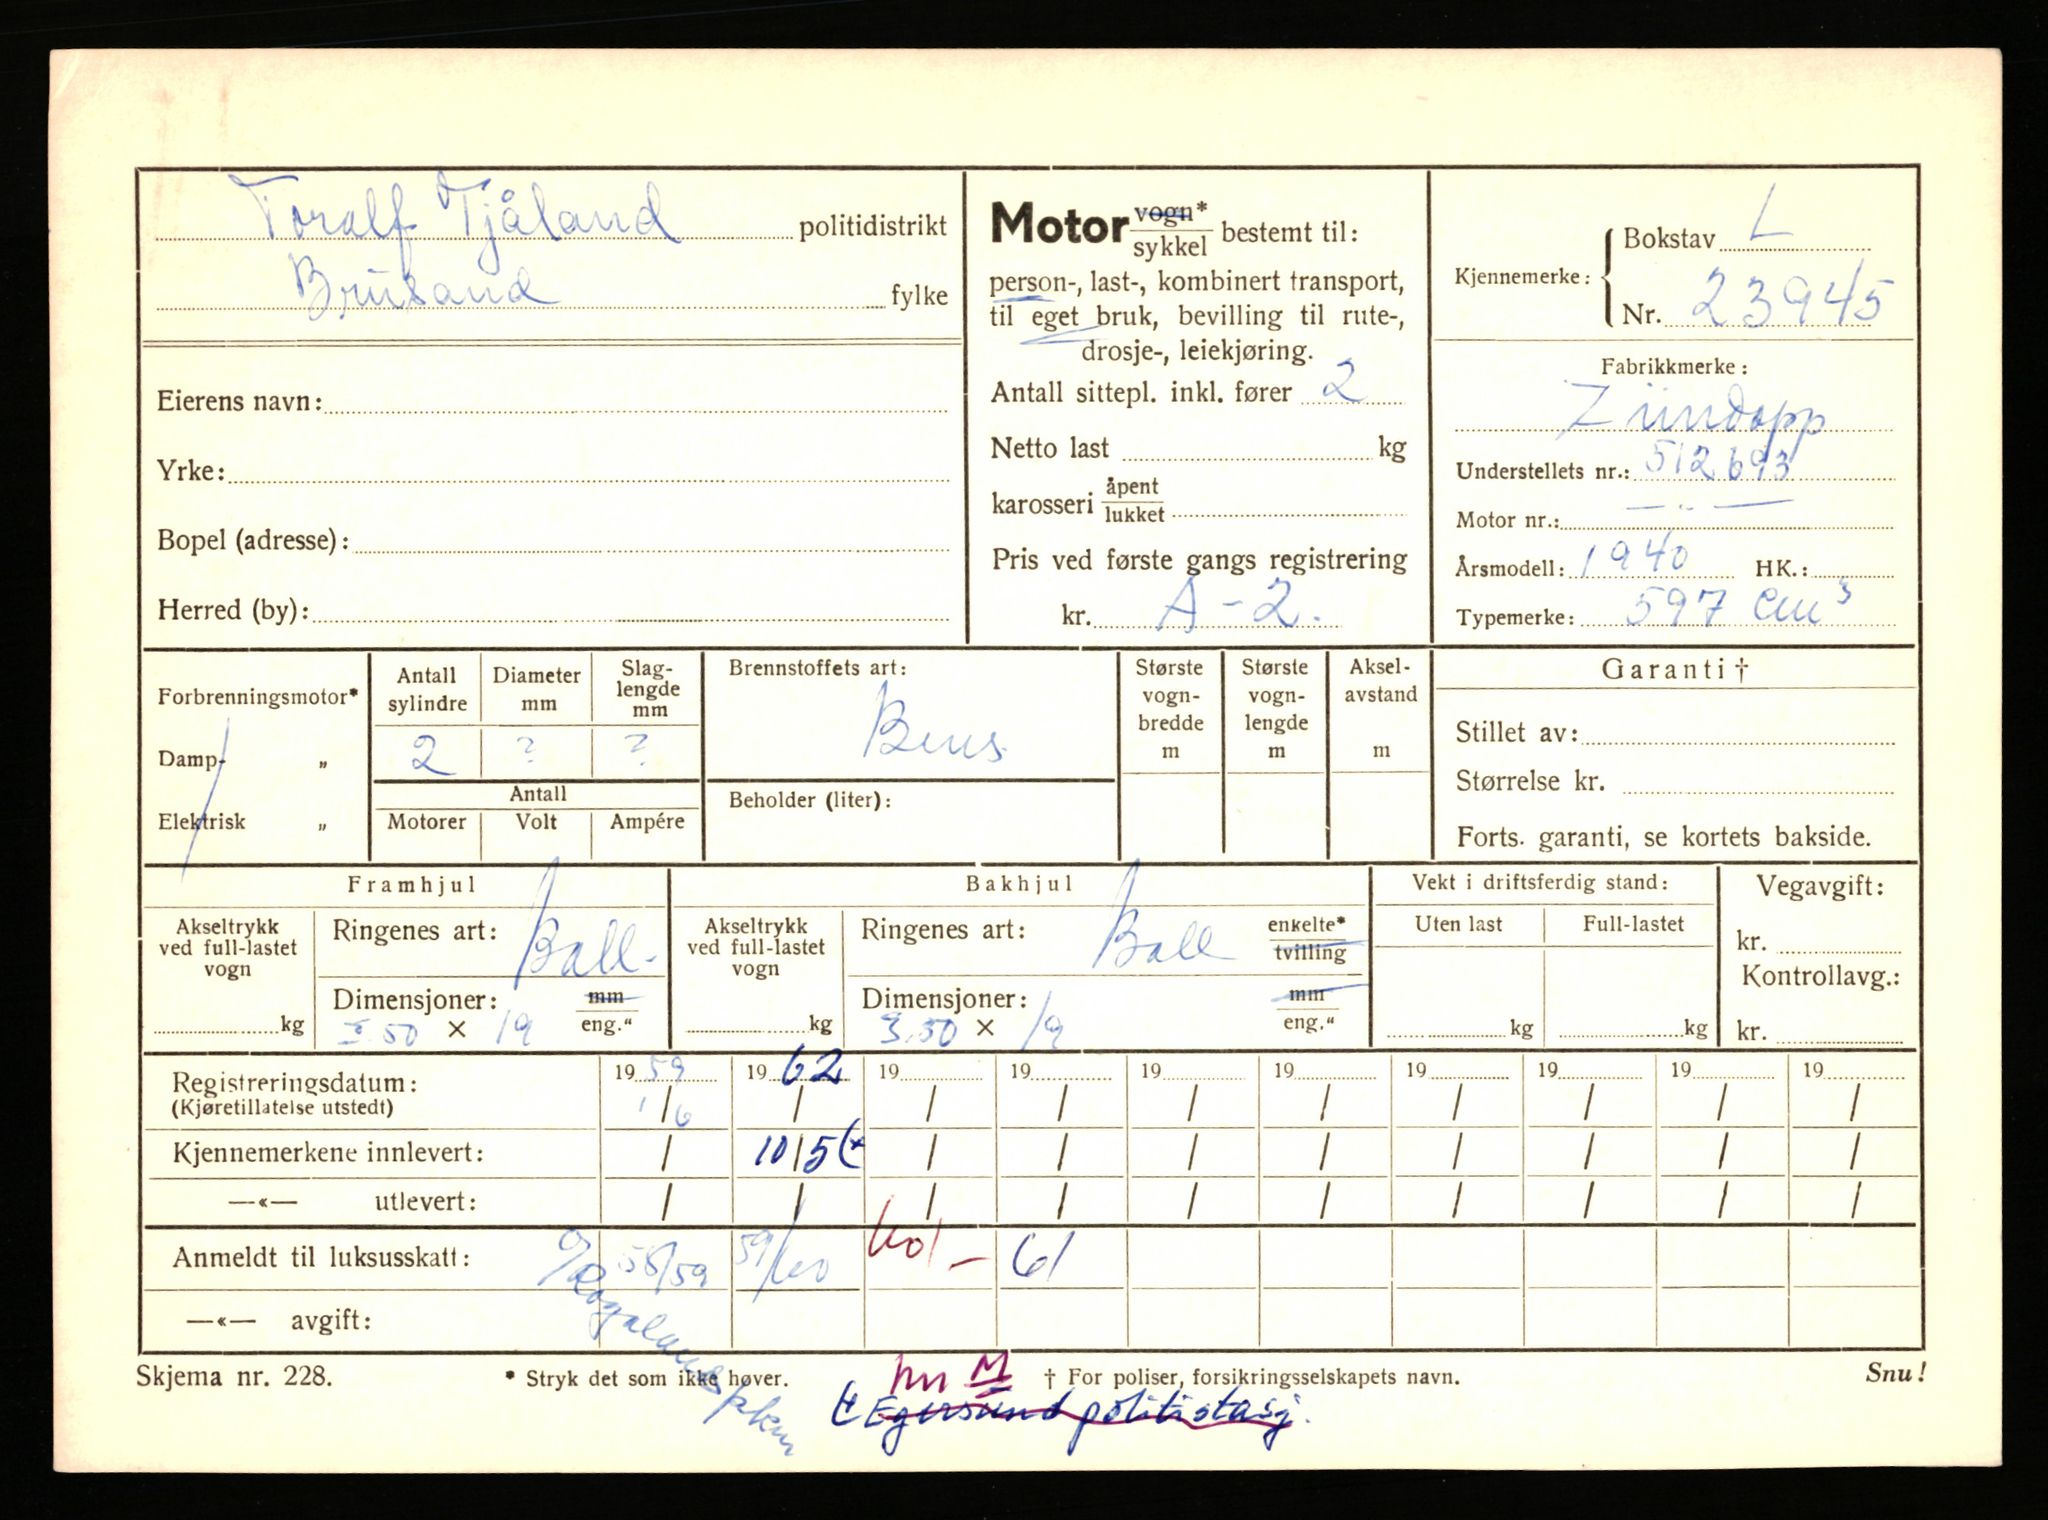 Toralf Tjåland politidistrikt
Brusand fylke
Eierens navn:
Yrke:
Bopel (adresse):
Herred (by):
Motor vogn* / sykkel bestemt til:
person-, last-, kombinert transport,
til eget bruk, bevilling til rute-,
drosje-, leiekjøring.
Antall sittepl. inkl. fører 2
Netto last kg
karosseri åpent / lukket
Pris ved første gangs registrering
kr. A-2.
Kjennemerke: { Bokstav L
Nr. 23945
Fabrikkmerke:
Zündapp
Understellets nr.: 512693
Motor nr.: — „ —
Årsmodell: 1940 HK.:
Typemerke: 597 cm³
Forbrenningsmotor*
Damp- „
Elektrisk „
Antall sylindre
Diameter mm
Slag-
lengde
mm
2 ? ?
Antall
Motorer Volt Ampére
Brennstoffets art:
Bens.
Beholder (liter):
Største
vogn-
bredde
m
Største
vogn-
lengde
m
Aksel-
avstand
m
Garanti †
Stillet av:
Størrelse kr.
Forts. garanti, se kortets bakside.
Framhjul
Akseltrykk
ved full-lastet
vogn
kg
Ringenes art: Ball.
Dimensjoner: mm / eng."
3.50 × 19
Bakhjul
Akseltrykk
ved full-lastet
vogn
kg
Ringenes art: Ball enkelte* / tvilling
Dimensjoner: mm / eng."
3.50 × 19
Vekt i driftsferdig stand:
Uten last Full-lastet
kg kg
Vegavgift:
kr.
Kontrollavg.:
kr.
Registreringsdatum: 19 59 19 62 19 19 19 19 19 19 19 19
(Kjøretillatelse utstedt) 1/6 / / / / / / / / /
Kjennemerkene innlevert: / 10/5 (* / / / / / / / /
—«— utlevert: / / / / / / / / / /
Anmeldt til luksusskatt: 58/59 59/60 60/- 61
—«— avgift:
Rogaland pkm
Skjema nr. 228. * Stryk det som ikke høver. † For poliser, forsikringsselskapets navn. Snu!
M
Egersund politistasj.